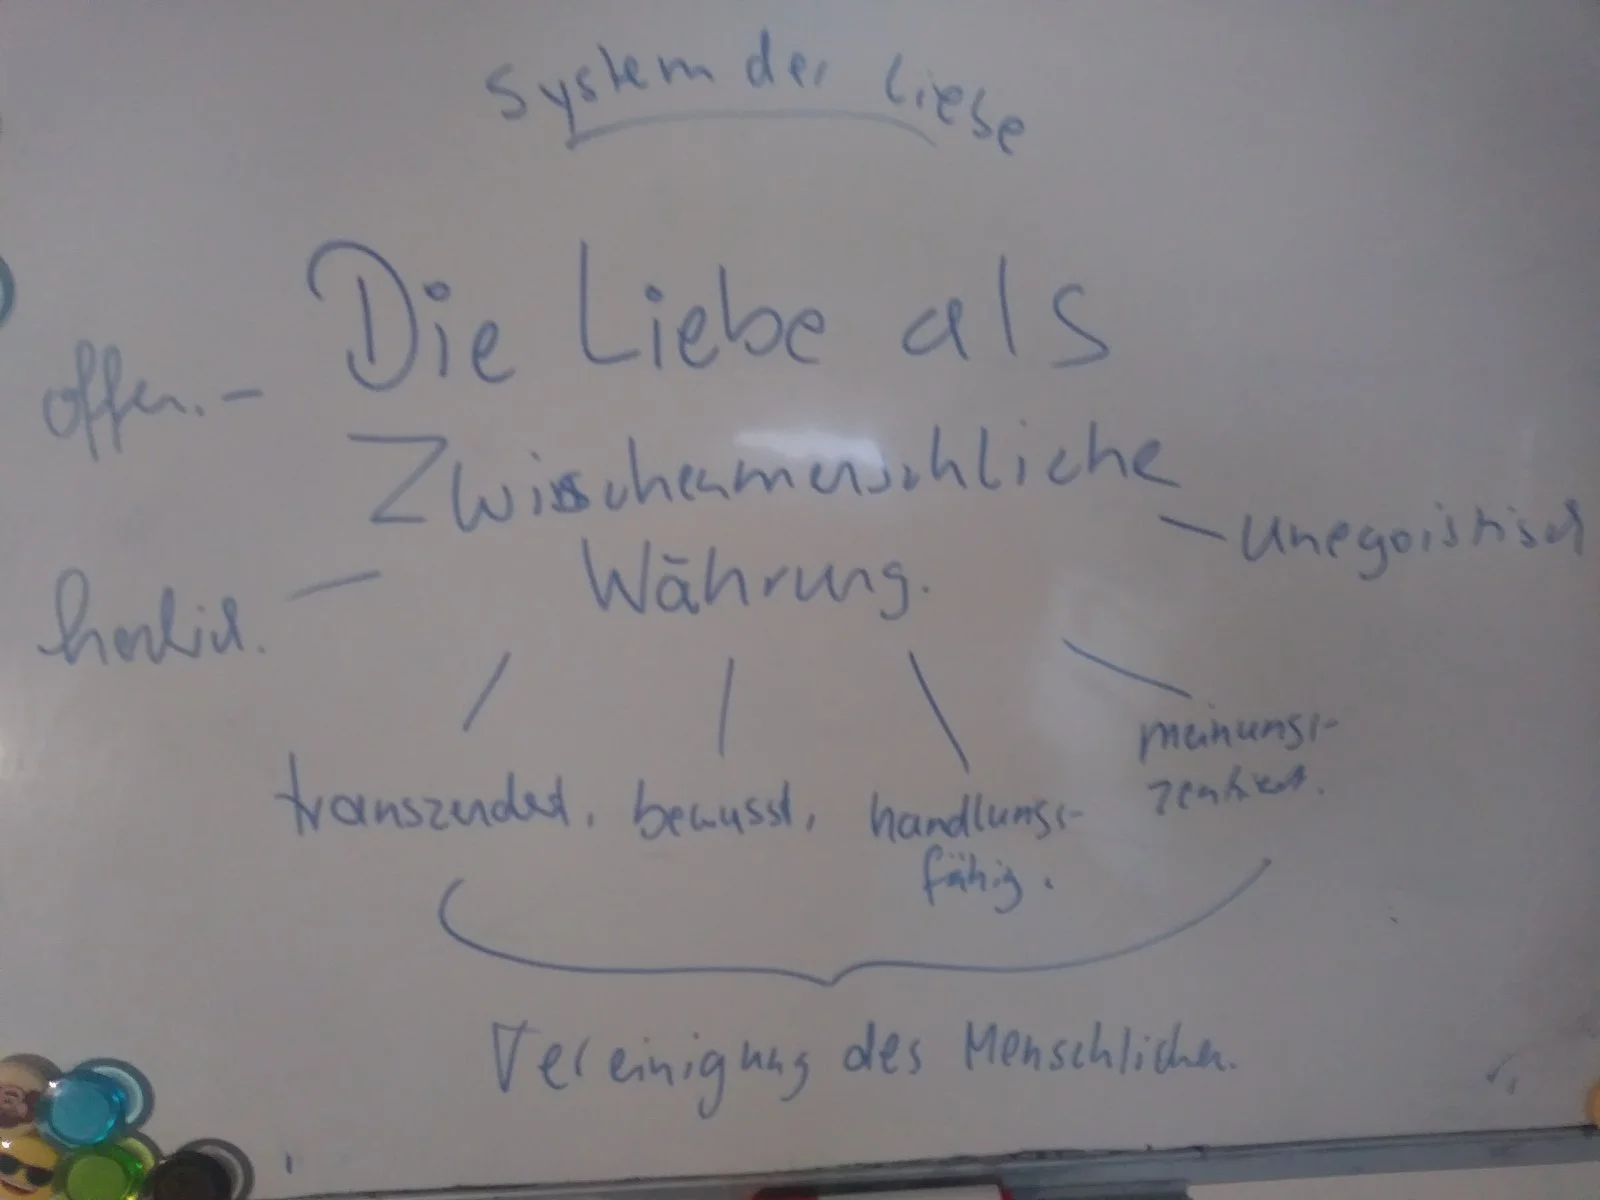 System der Liebe
Die Liebe als
offen. -
Zwischenmenschliche
- unegoistisch
Währung.
transzendent, bewusst, handlungs-
fähig.
meinungs-
zentriert.
Vereinigung des Menschlichen.